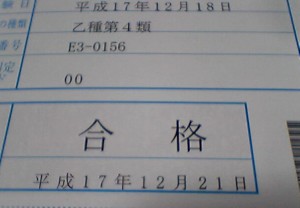 験日 平成17年12月18日
の種類 乙種第4類
番号 E3-0156
00
合格
平成17年12月21日